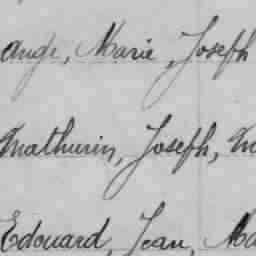 Ange, Marie, Joseph
Mathurin, Joseph,
Edouard, Jean, Ma